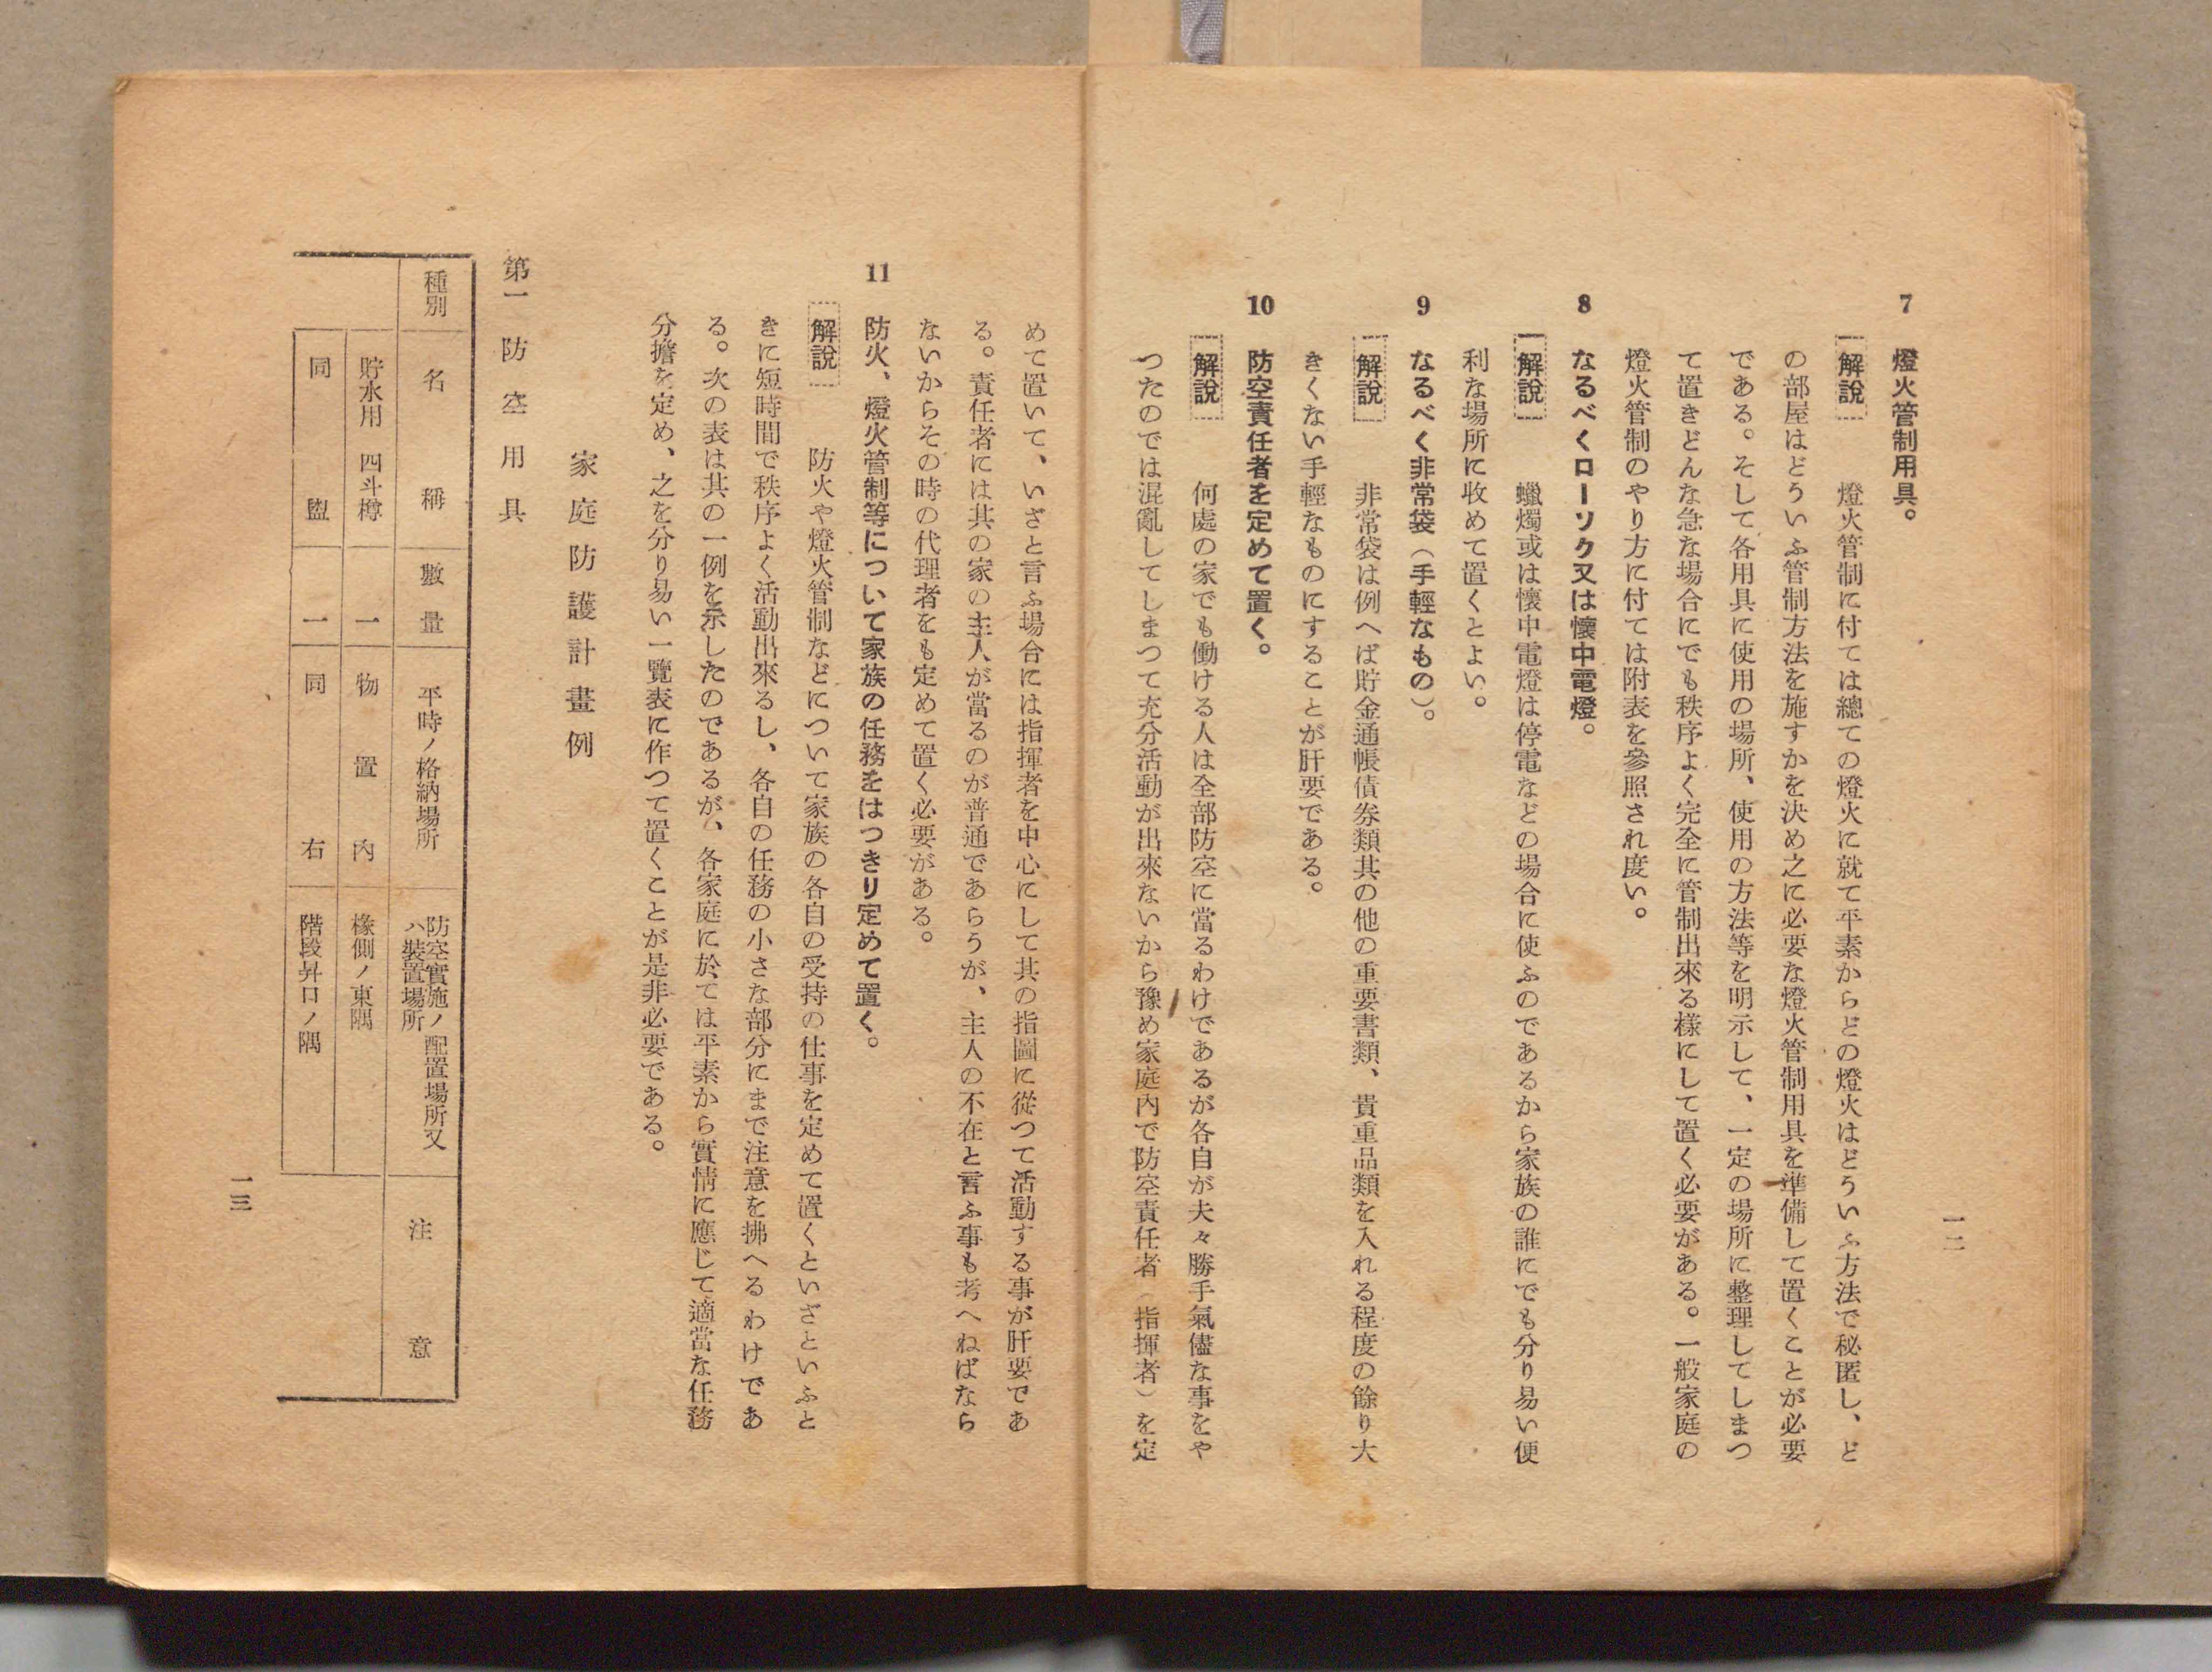 一二
7　燈火管制用具。
解說　燈火管制に付ては總ての燈火に就て平素からどの燈火はどういふ方法で秘匿し、ど
の部屋はどういふ管制方法を施すかを決め之に必要な燈火管制用具を準備して置くことが必要
である。そして各用具に使用の場所、使用の方法等を明示して、一定の場所に整理してしまつ
て置きどんな急な場合にでも秩序よく完全に管制出來る樣にして置く必要がある。一般家庭の
燈火管制のやり方に付ては附表を參照され度い。
8　なるべくローソク又は懷中電燈。
解說　蠟燭或は懷中電燈は停電などの場合に使ふのであるから家族の誰にでも分り易い便
利な場所に收めて置くとよい。
9　なるべく非常袋（手輕なもの）。
解說　非常袋は例へば貯金通帳債券類其の他の重要書類、貴重品類を入れる程度の餘り大
きくない手輕なものにすることが肝要である。
10　防空責任者を定めて置く。
解說　何處の家でも働ける人は全部防空に當るわけであるが各自が夫々勝手氣儘な事をや
つたのでは混亂してしまつて充分活動が出來ないから豫め家庭內で防空責任者（指揮者）を定
めて置いて、いざと言ふ場合には指揮者を中心にして其の指圖に從つて活動する事が肝要であ
る。責任者には其の家の主人が當るのが普通であらうが、主人の不在と言ふ事も考へねばなら
ないからその時の代理者をも定めて置く必要がある。
11　防火、燈火管制等について家族の任務をはつきり定めて置く。
解說　防火や燈火管制などについて家族の各自の受持の仕事を定めて置くといざといふと
きに短時間で秩序よく活動出來るし、各自の任務の小さな部分にまで注意を拂へるわけであ
る。次の表は其の一例を示したのであるが、各家庭に於ては平素から實情に應じて適當な任務
分擔を定め、之を分り易い一覽表に作つて置くことが是非必要である。
家庭防護計畫例
第一　防空用具
種別　名稱　數量　平時ノ格納場所　防空實施ノ配置場所又　注意
ハ裝置場所
貯水用　四斗樽　一　物置內　椽側ノ東隅
同　盥　一　同右　階段昇口ノ隅
一三